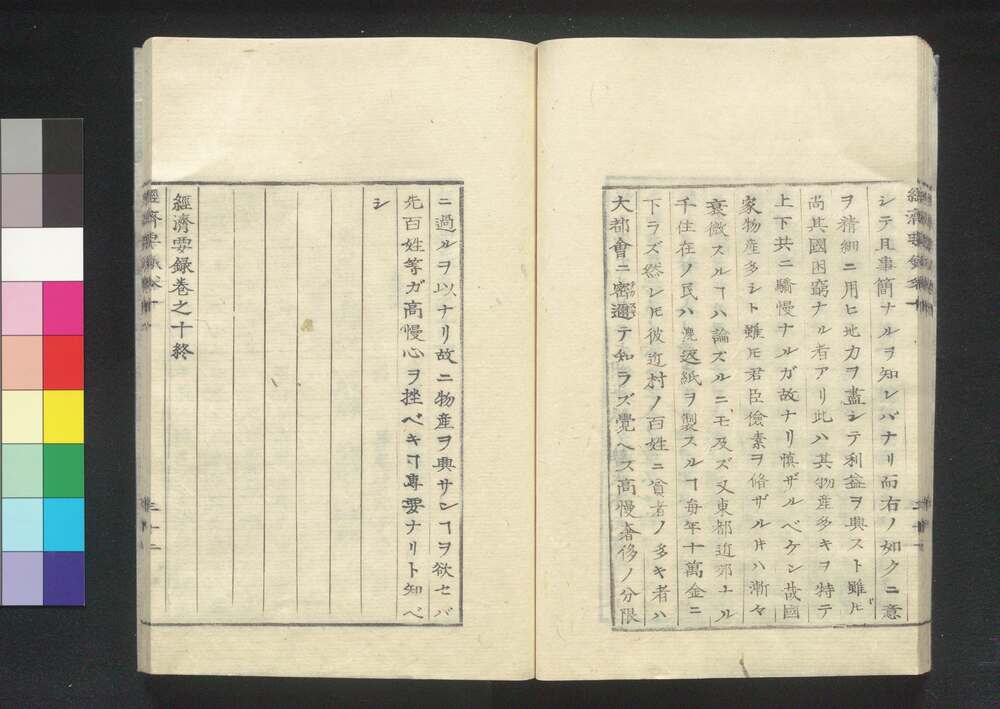 シテ且事簡ナルヲ知レバナリ而右ノ如クニ意
ヲ精細ニ用ヒ地力ヲ盡シテ利益ヲ興スト雖𪜈
尚其國困窮ナル者アリ此ハ其物産多キヲ特テ
上下共ニ驕慢ナルガ故ナリ慎ザルベケン哉國
家物産多シト雖𪜈君臣儉素ヲ脩ザル𪜈ハ漸々
衰微スルヿハ論ズルニモ及ズ又東都近郊ナル
千住在ノ民ハ漉返紙ヲ製スルヿ毎年十萬金ニ
下ラズ然レ𪜈彼近村ノ百姓ニ貧者ノ多キ者ハ
大都會ニ密邇テ知ラズ覺ヘス高慢奢侈ノ分限
ニ過ルヲ以ナリ故ニ物産ヲ興サンヿヲ欲セバ
先百姓等ガ高慢心ヲ挫ベキヿ專要ナリト知ベ
シ
經濟要録巻之十終